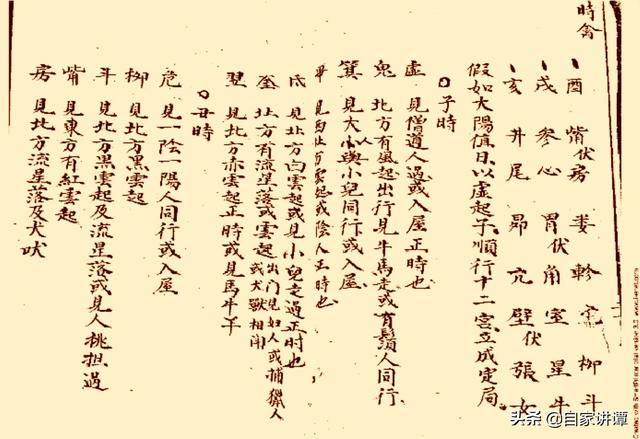 時禽
酉 觜伏房 娄 軫 鬼 柳 斗
戌 参心 胃伏角 室 星 牛
亥 井尾 昴 亢 壁伏張 女
假如太陽值日以虛起子順行十二宮立成定局
○子時
虛 見僧道人過或入屋正時也
鬼 北方有風起出行見牛馬走或有鬚人同行
箕 見大人與小兒同行或入屋
畢 見西北方雲起或陰人正時也
氐 見北方白雲起或見小兒走過正时也
奎 北方有流星落或雲起出门見妇人或捕獵人或犬獸相鬭
翌 見北方赤雲起正時或見馬牛羊
○丑時
危 見一陰一陽人同行或入屋
柳 見北方黑雲起
斗 見北方黑雲起及流星落或見人挑担過
觜 見東方有紅雲起
房 見北方流星落及犬吠
头条 @自家讲谭